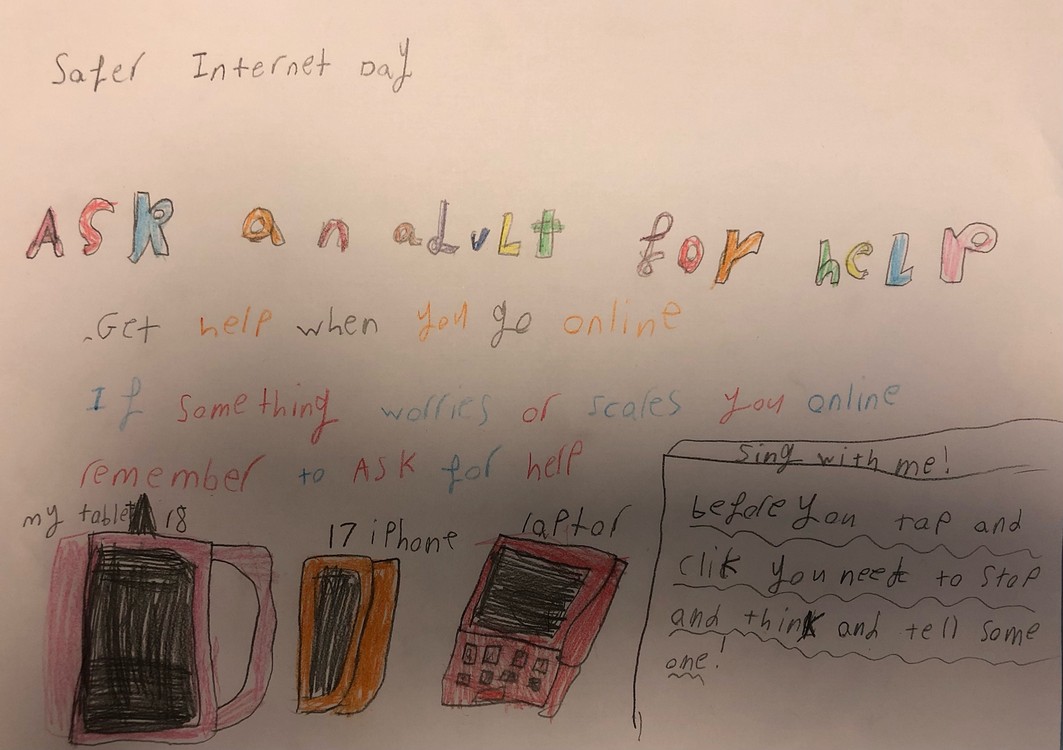 Safer Internet Day
ASK an adult for help
.Get help when you go online
If something worries or scares you online
remember to ASK for help
my tablet 18
17 iPhone
laptop
Sing with me!
before you tap and
clik you need to stop
and think and tell some
one!